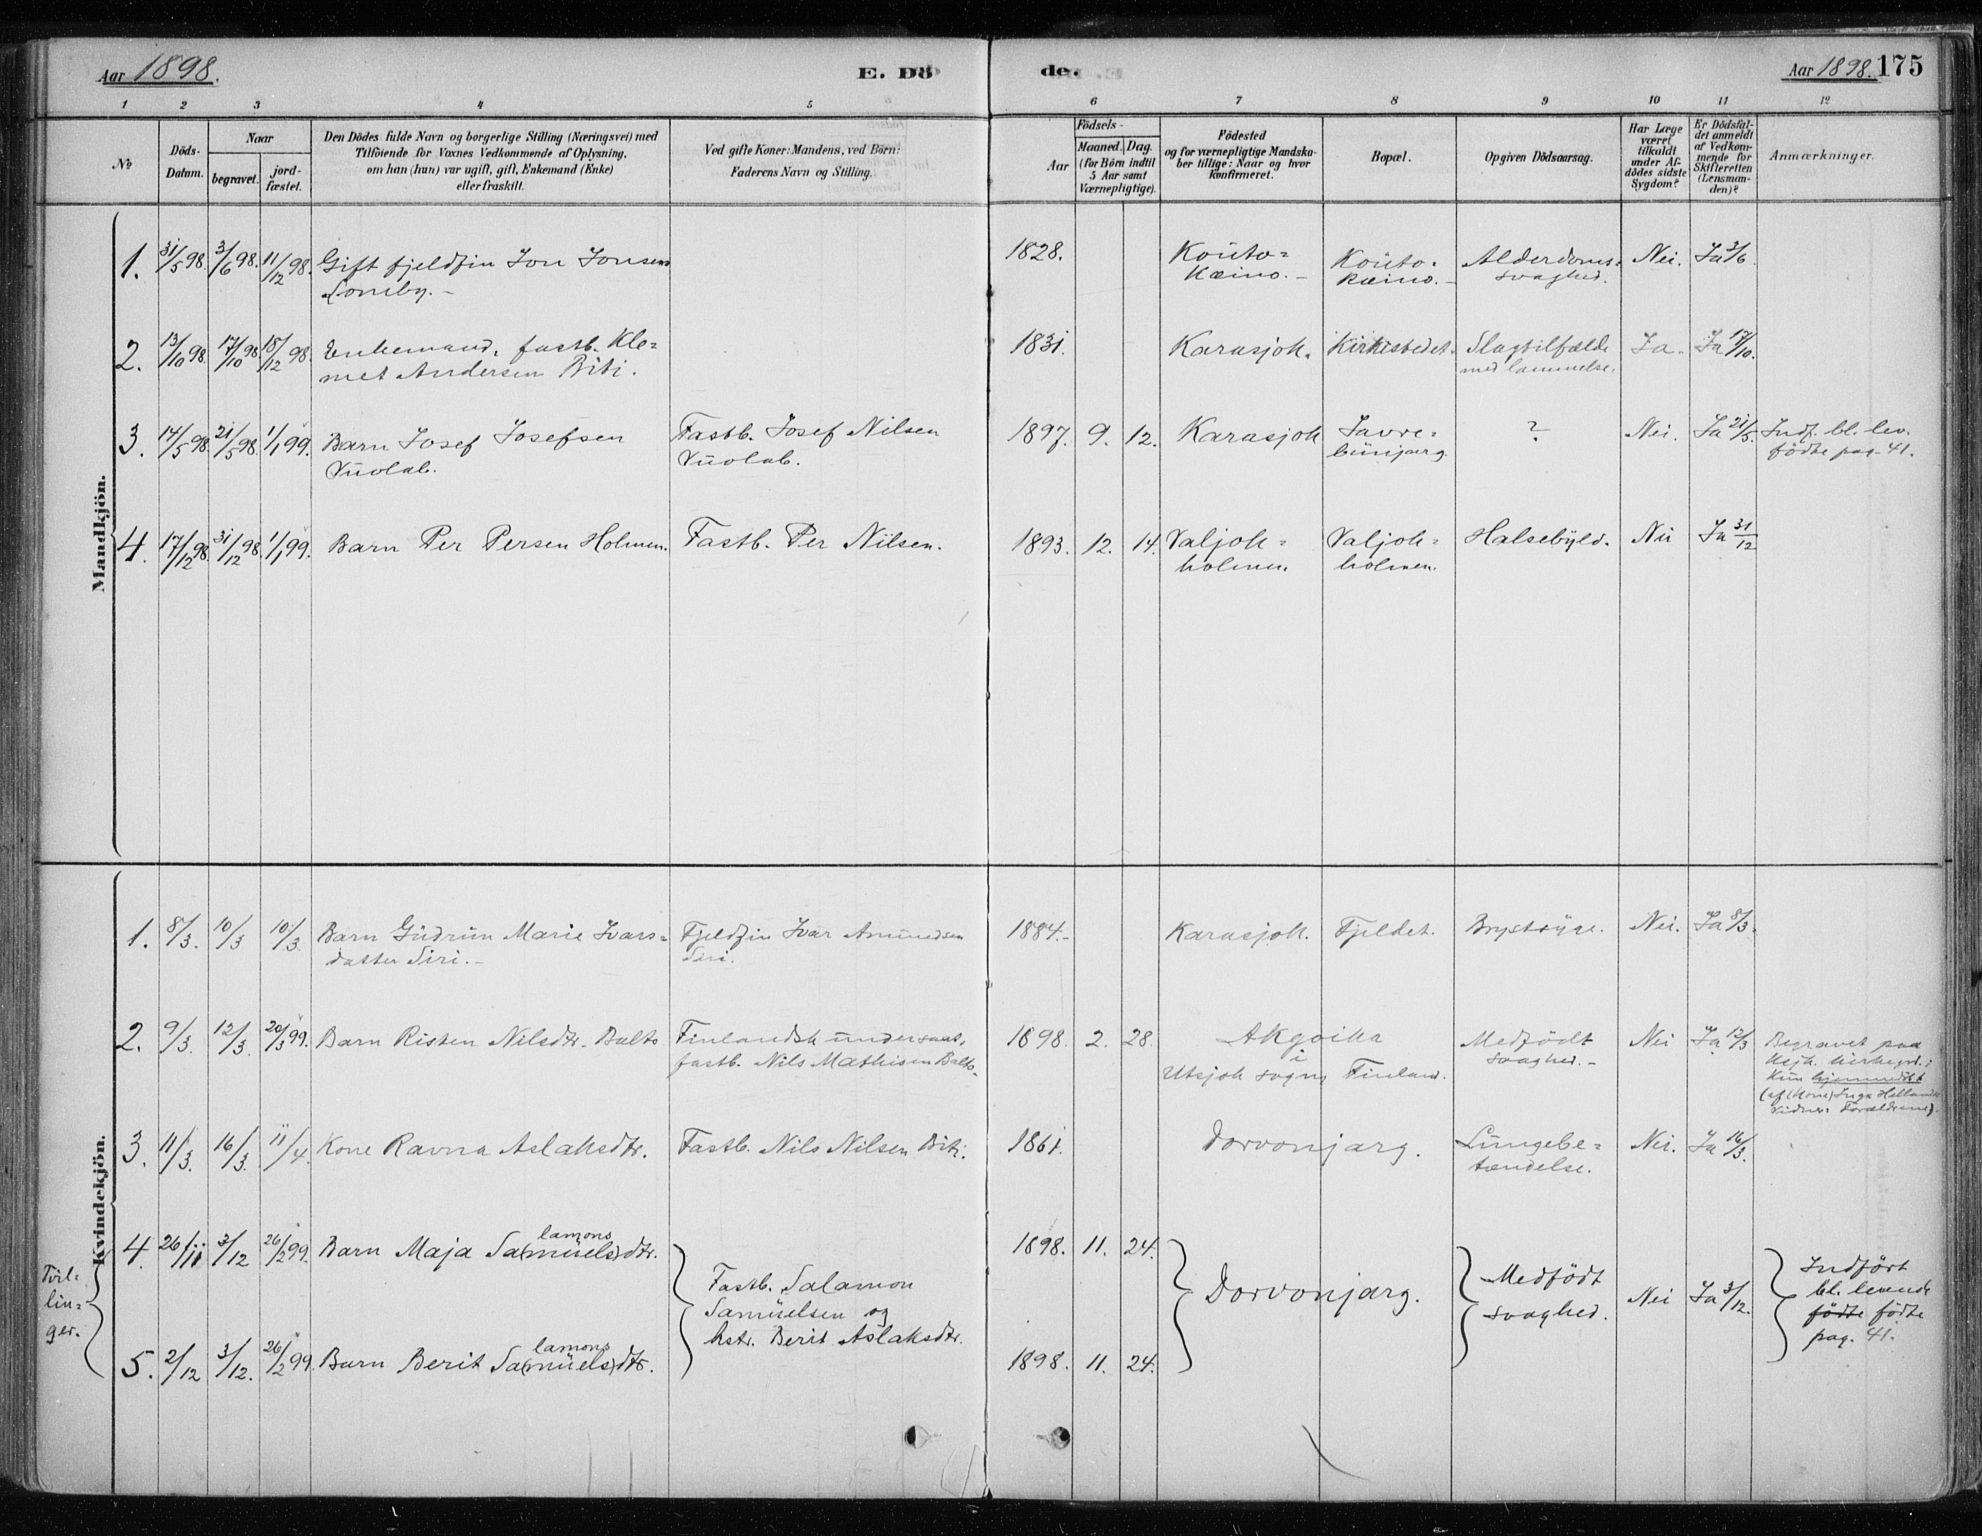 Aar 1898.
E. Dö
de.
Aar 1898. 175
1 2 3 4 5 6 7 8 9 10 11 12
No
Döds-
Datum.
Naar
begravet.
jord-
fæstet.
Den Dödes fulde Navn og borgerlige Stilling (Næringsvei) med
Tilföiende for Voxnes Vedkommende af Oplysning,
om han (hun) var ugift, gift, Enkemand (Enke)
eller fraskilt.
Ved gifte Koner: Mandens, ved Börn:
Faderens Navn og Stilling.
Födsels-
Aar
Maaned. Dag.
(for Börn indtil
5 Aar samt
Værnepligtige).
Födested
og for værnepligtige Mandska-
ber tillige: Naar og hvor
konfirmeret.
Bopæl.
Opgiven Dödsaarsag.
Har Læge
været
tilkaldt
under Af-
dödes sidste
Sygdom?
Er Dödsfal-
det anmeldt
af Vedkom-
mende for
Skifteretten
(Lensman-
den)?
Anmærkninger.
Mandkjön.
1. 31/5 98. 3/6 98. 11/12 98. Gift fjeldfin Jon Jonsen
1828. Koüto= Koüto= Alderdoms= Nei. Ja 3/6.
kæino.- kæino.- svaghed.
2. 13/10 98. 17/10 98. 18/12 98. Enkemand, fastb. Kle=
met Andersen Biti.
1831. Karasjok. Kirkestedet. Slagtilfælde Ja. Ja 17/10.
med lammelse.
3. 14/5 98. 21/5 98. 1/1 99. Barn Josef Josefsen Fastb. Josef Nilsen
Vüolab. Vüolab.
1897. 9. 12. Karasjok Javre= ? Nei. Ja 21/5. Indf. bl. lev.
födte pag. 41.
4. 17/12 98. 31/12 98. 1/1 99. Barn Per Persen Holmen. Fastb. Per Nilsen.
1893. 12. 14. Valjok= Valjok= Halsebyld. Nei Ja 31/12
holmen. holmen.
Kvindekjön.
1. 8/3. 10/3 10/3. Barn Güdrün Marie Ivars= Fjeldfin Ivar Amundsen
datter Siri.- Siri.
1884.- Karasjok. Fjeldet. Brystsyge. Nei. Ja 8/3.
2. 9/3. 12/3. 20/3 99. Barn Risten Nilsdtr. Balto Finlandsk ündersaat,
fastb. Nils Mathisen Balto.
1898. 2. 28. Medfödt Nei Ja 12/3
i svaghed.-
Utsjok sogn, Finland.
Begravet paa
kün hjemmedöbt
(af (kone) Inga
Vidner: Forældrene).
3. 11/3. 16/3. 11/4. Kone Ravna Aslaksdtr. Fastb. Nils Nilsen Biti.
1861. Dorvonjarg. Lüngebe= Nei. Ja 16/3.
tændelse.
Tvil=
lin=
ger.
4. 26/11 3/12 26/2 99. Barn Maja Sa(müels)dtr.
lamons
1898. 11. 24.
Fastb. Salamon
Samüelsen og
hstr. Berit Aslaksdtr.
Dorvonjarg.
Medfödt
svaghed.
Nei Ja 3/12.
Indfört
bl. levende
födte födte
pag. 41.
5. 2/12 3/12. 26/2 99. Barn Berit Sa(müels)dtr.
lamons
1898. 11. 24.